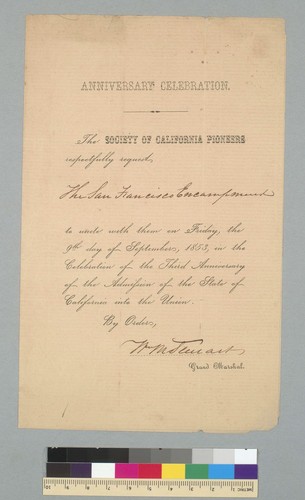 ANNIVERSARY CELEBRATION.
The SOCIETY OF CALIFORNIA PIONEERS
respectfully request,
The San Francisco Encampment
to unite with them on Friday, the
9th day of September, 1853, in the
Celebration of the Third Anniversary
of the Admission of the State of
California into the Union.
By Order,
Grand Marshal.